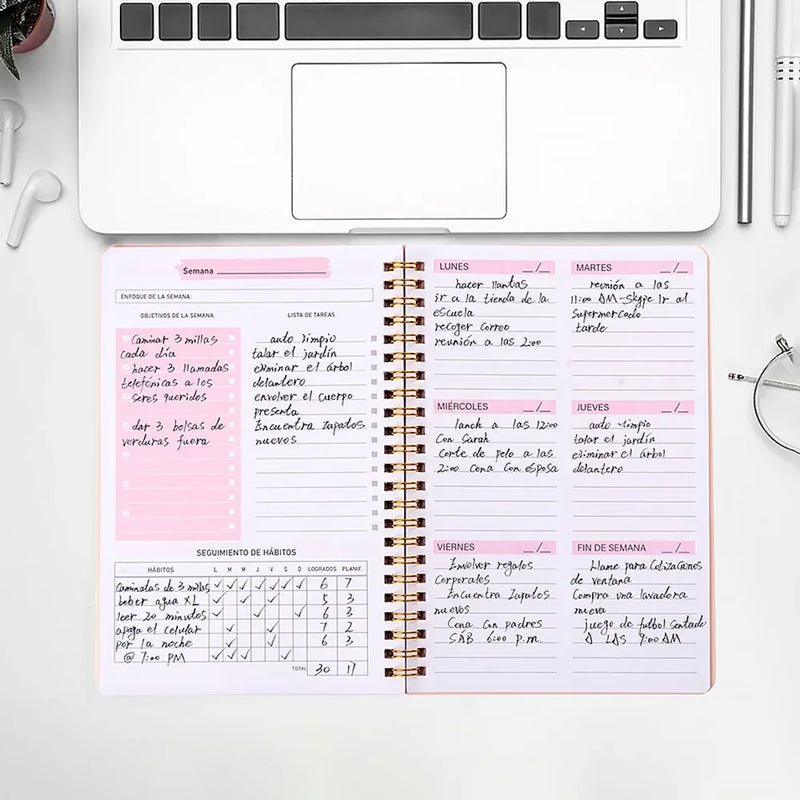 Semana
ENFOQUE DE LA SEMANA:
OBJETIVOS DE LA SEMANA
Caminar 3 millas
cada día
hacer 3 llamadas
telefónicas a los
seres queridos
dar 3 bolsas de
verduras fuera
LISTA DE TAREAS
auto limpio
talar el jardín
eliminar el árbol
delantero
envolver el cuerpo
presenta
Encuentra zapatos
nuevos
SEGUIMIENTO DE HÁBITOS
HÁBITOS L M M J V S D LOGRADOS PLANIF.
Caminatas de 3 millas ✓ ✓ ✓ ✓ ✓ ✓ ✓ 6 7
beber agua XL ✓ ✓ ✓ 5 3
leer 20 minutos ✓ ✓ ✓ 6 3
apaga el celular ✓ ✓ 7 2
por la noche ✓ ✓ 6 3
@ 7:00 PM ✓ ✓ ✓ ✓
TOTAL 30 17
LUNES __/__
hacer llantas
ir a la tienda de la
escuela
recoger correo
reunión a las 2:00
MARTES __/__
reunión a las
11:00 AM-Skype Ir al
Supermercado
tarde
MIÉRCOLES __/__
lanch a las 12:00
Con Sarah
Corte de pelo a las
2:00 Cena Con esposa
JUEVES __/__
auto limpio
talar el jardín
eliminar el árbol
delantero
VIERNES __/__
Envolver regalos
Corporates
Encuentra Zapatos
nuevos
Cena Con padres
SAB 6:00 p.m.
FIN DE SEMANA __/__
Llame para Cotizaciones
de ventana
Compra una lavadora
nueva
juego de futbol Sentado
A LAS 9:00 AM